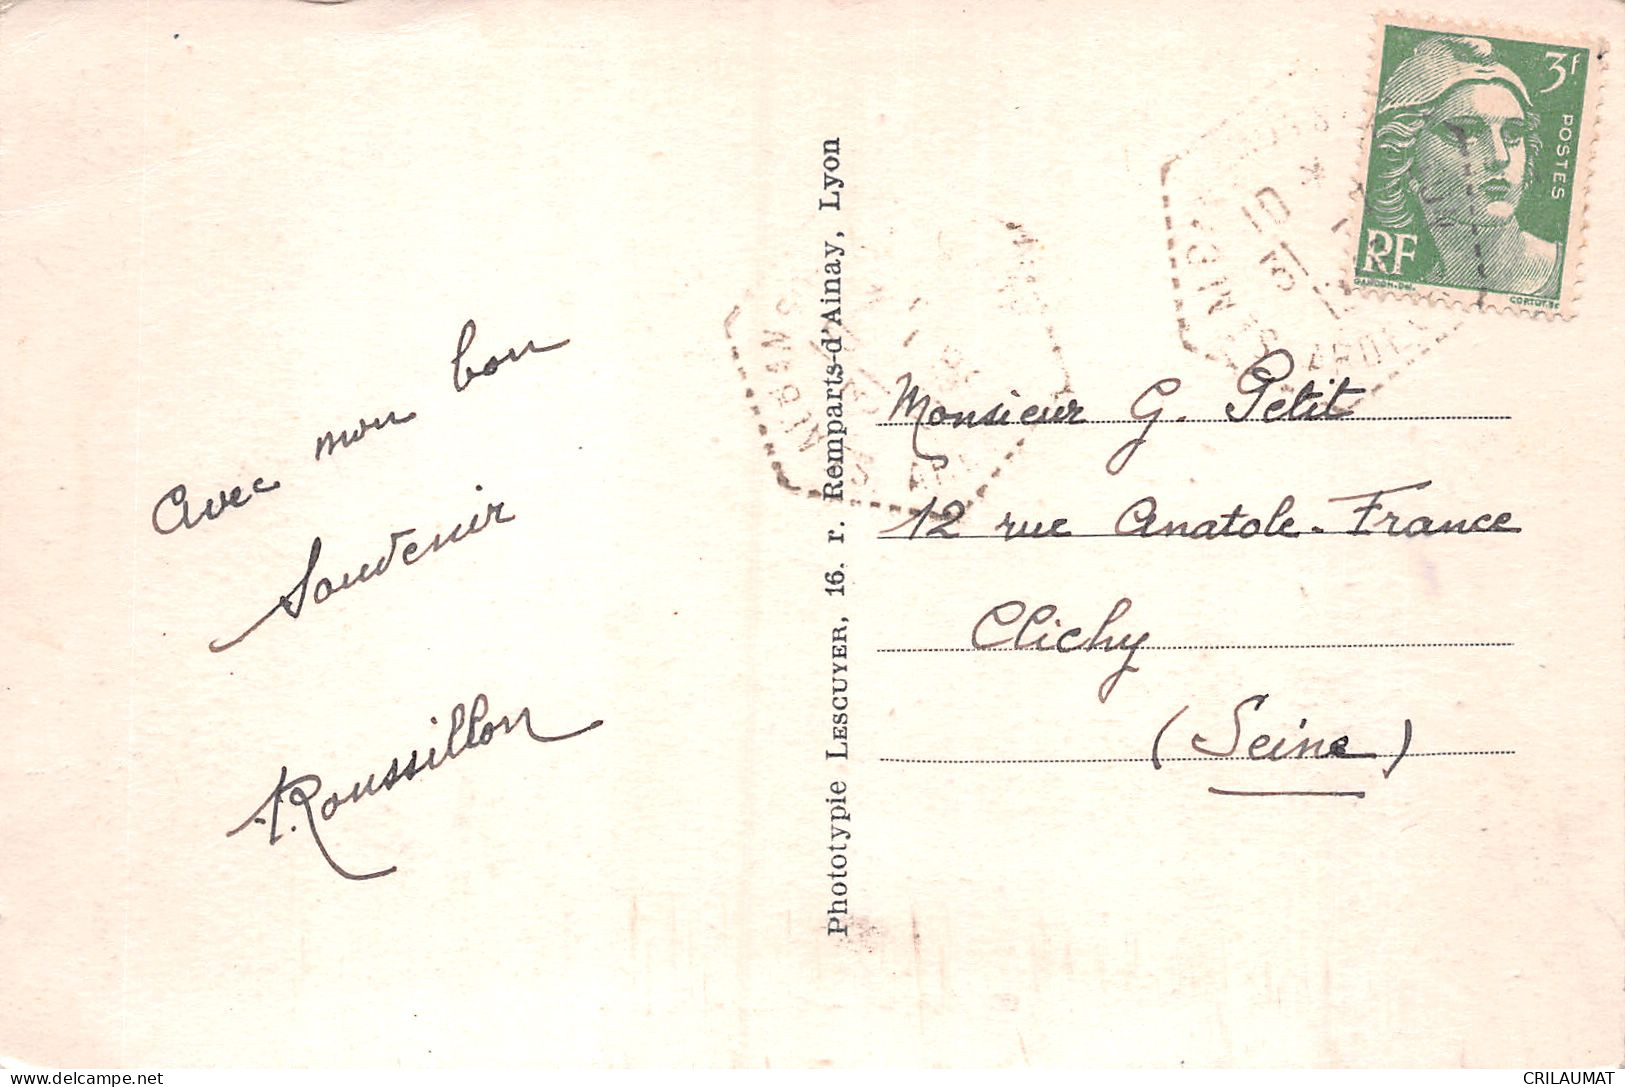 avec mon bon
Souvenir
Roussillon
Phototypie LESCUYER, 16. r. Remparts-d'Ainay, Lyon
3f
POSTES
RF
GANDON-DEL
CORTOT.SC
10
31
Monsieur G. Petit
12 rue Anatole-France
Clichy
(Seine)
www.delcampe.net
CRILAUMAT